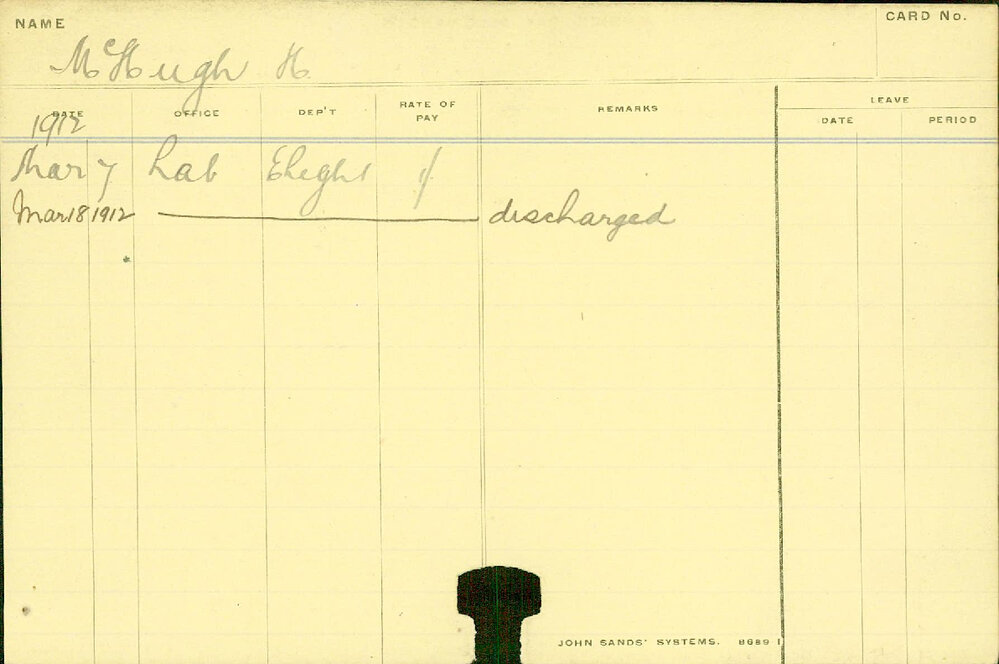 NAME
CARD No.
McHugh H.
DATE OFFICE DEP'T RATE OF PAY REMARKS LEAVE
DATE PERIOD
1912
Mar 7 Lab Eleght
Mar 18 1912 discharged
JOHN SANDS' SYSTEMS. 8689 1